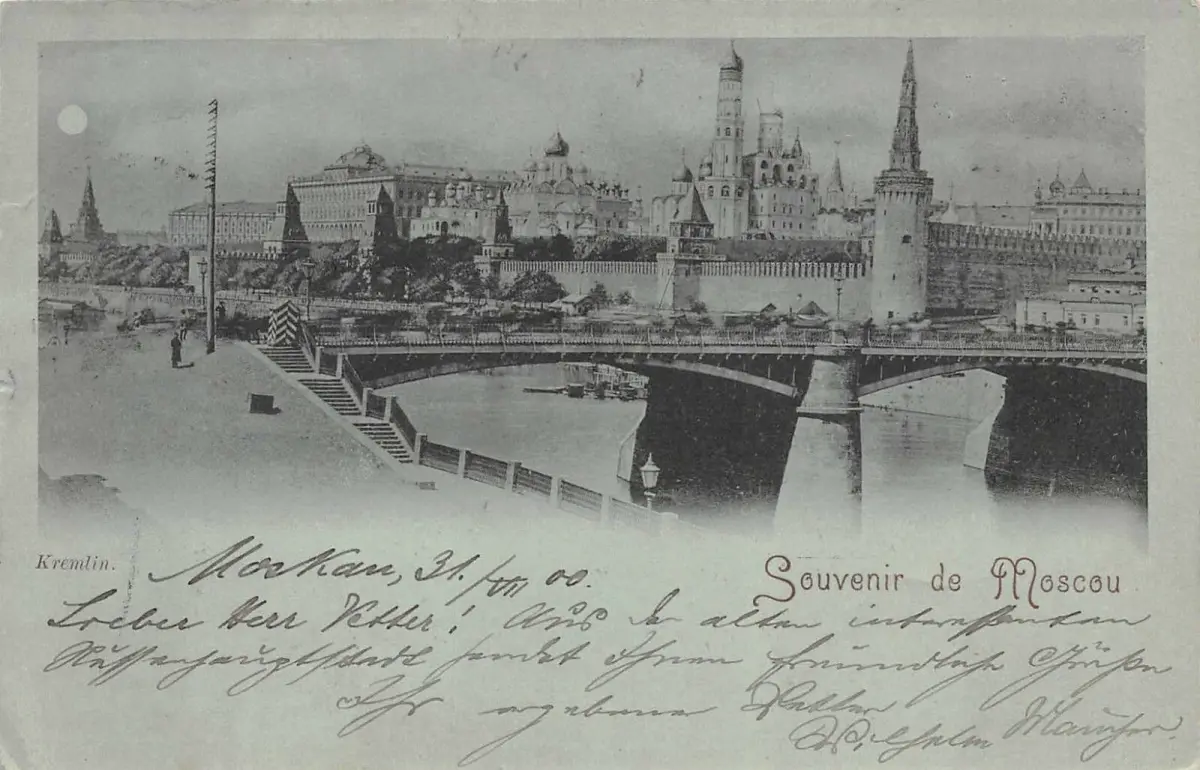 Kremlin.
Souvenir de Moscou
Moskau, 31./VII 00.
Lieber Herr Vetter! Aus der alten interessanten
Russenhauptstadt sendet Ihnen freundliche Grüße
Ihr ergebener Vetter
Wilhelm Maucher.